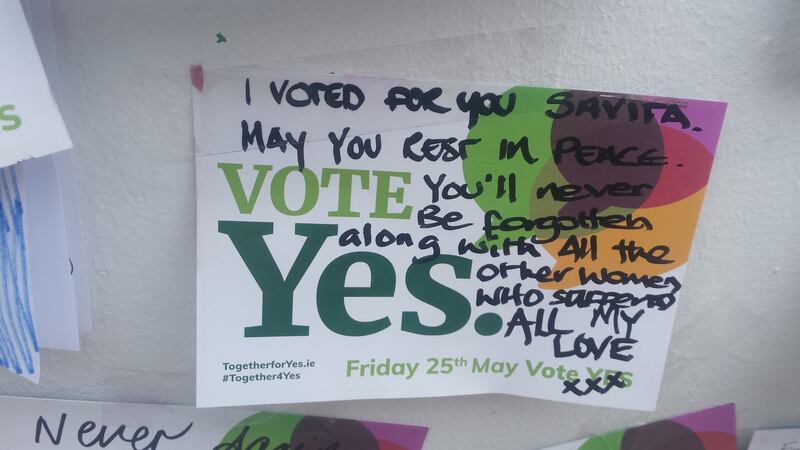 s
I VOTED FOR YOU SAVITA.
MAY YOU REST IN PEACE.
VOTE
Yes.
You'll never
Be forgotten
along with All the
other women
WHO SUFFERED
ALL MY
LOVE
xxx
TogetherforYes.ie
#Together4Yes
Friday 25th May Vote YES
Never Again